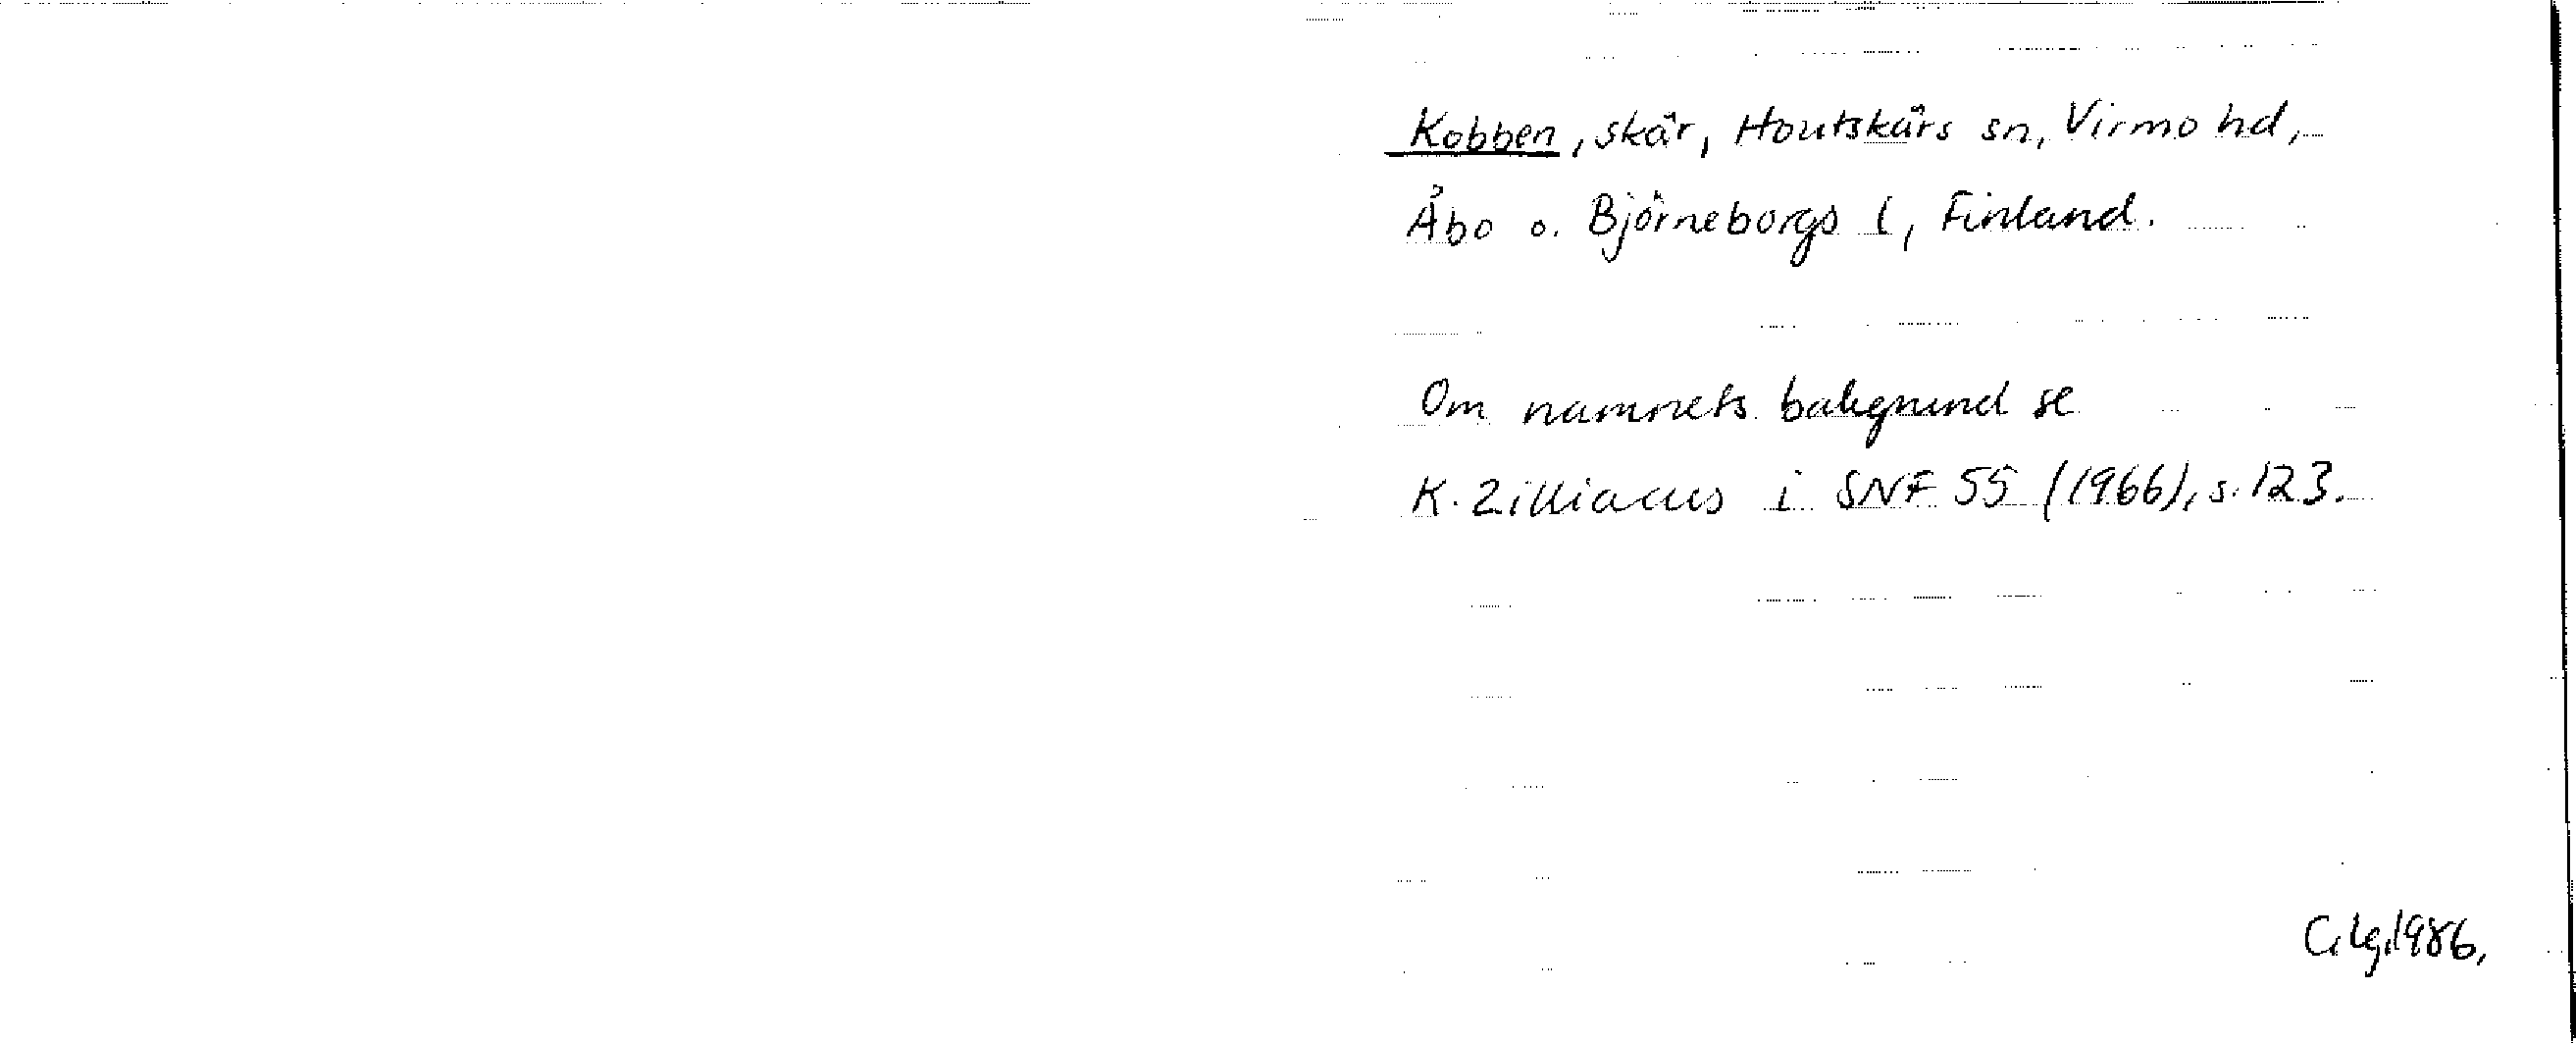 Kobben, skär, Houtskärs sn, Virmo hd,
Åbo o. Björneborgs l, Finland.
Om namnets bakgrund se
K. Zilliacus i SNF 55 (1966), s. 123.
C. Lg. 1986.